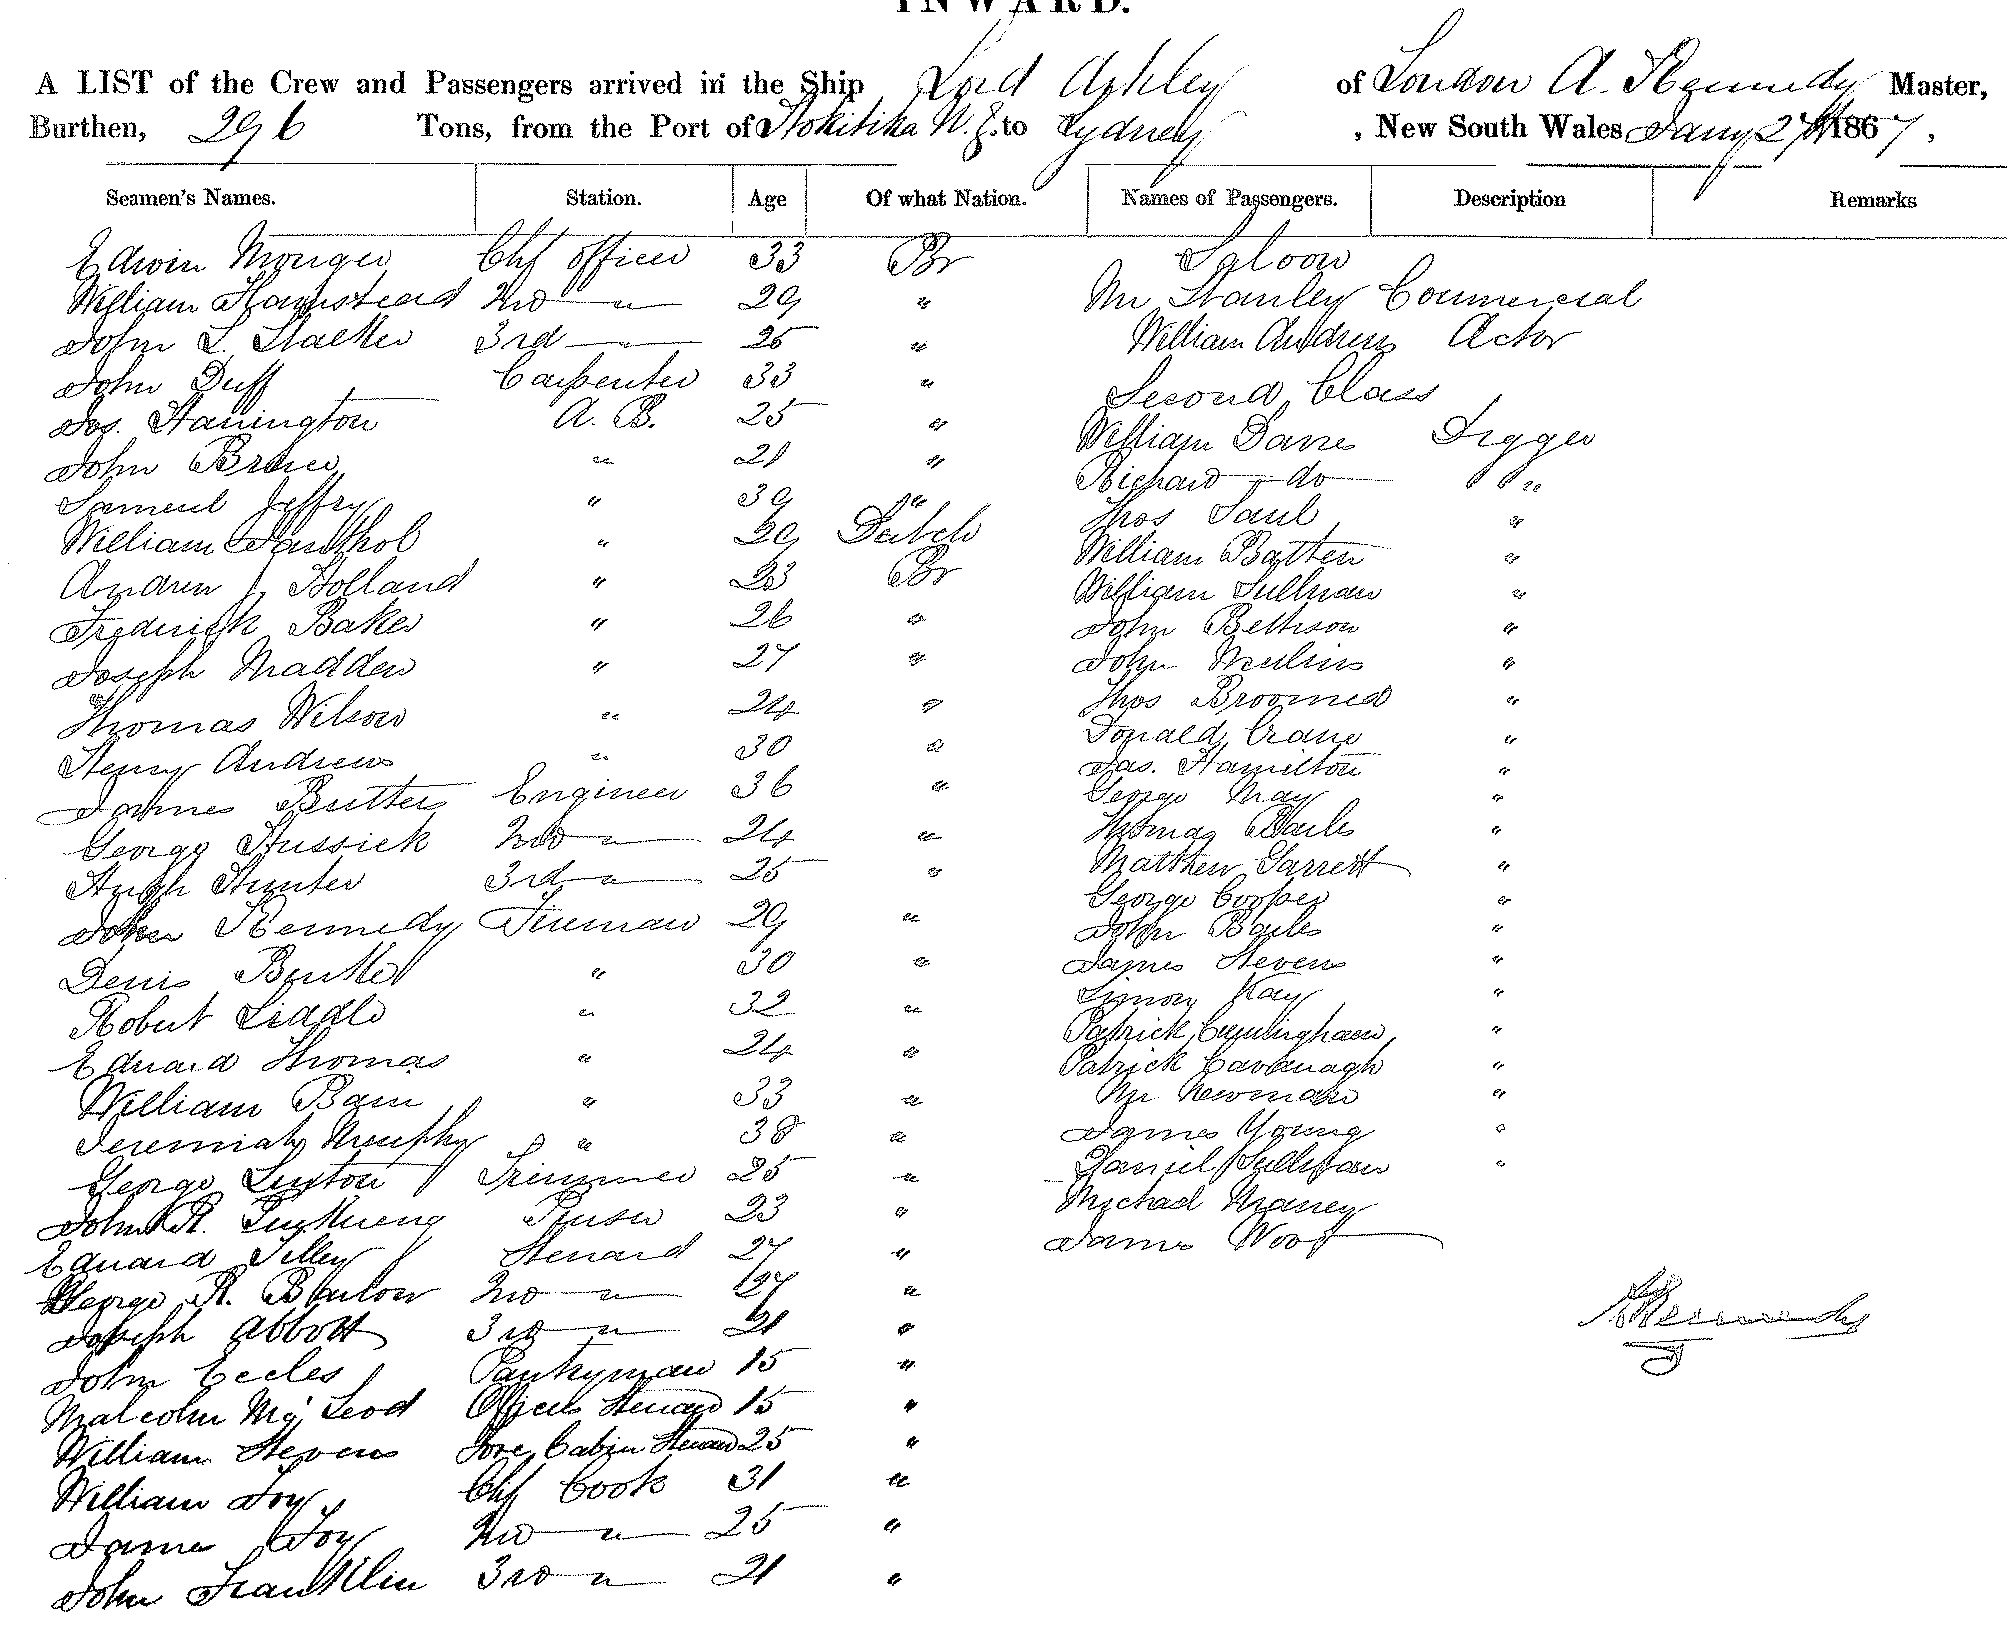 INWARD.
A LIST of the Crew and Passengers arrived in the Ship Lord Ashley of London A. Kennedy Master,
Burthen, 296 Tons, from the Port of Hokitika N.Z. to Sydney, New South Wales Jany 27th 1867,
Seamen's Names. Station. Age Of what Nation. Names of Passengers. Description Remarks
Edwin Monger Chf officer 33 Br Saloon
William Hampstead 2nd " 29 " Mr Stanley Commercial
John L. 3rd " 25 " William Andrews Actor
John Duff Carpenter 33 " Second Class
Jos. Hanington A. B. 25 " William Davies Digger
John Bruce " 21 " Richard do "
Samuel Jeffry " 39 " Thos Saul "
William " 29 Dutch William Batten "
Andrew J. Holland " 23 Br William Sullivan "
Frederick Baker " 26 " John Bettison "
Joseph Madden " 27 " John Mullins "
Thomas Wilson " 24 " Thos Broomed "
Henry Andrews " 30 " Donald Crane "
James Butters Engineer 36 " Jas. Hamilton "
George Hussick 2nd " 24 " George May "
Hugh Hunter 3rd " 25 " Thomas Bailes "
John Kennedy Fireman 29 " Matthew Garrett "
Denis " 30 " George Cooper "
Robert Liddle " 32 " John Bailes "
Edward Thomas " 24 " James Stevens "
William Bain " 33 " Simon Kay "
Jeremiah Murphy " 38 " Patrick Cunningham "
George Luxton Trimmer 25 " Patrick Cavanagh "
John R. Purser 23 " Mr Newman "
Edward Tilley Steward 27 " James Young "
George R. Barlow 2nd " 27 " Daniel Sullivan "
Joseph Abbott 3rd " 21 " Michael Maney
John Eccles Pantryman 15 " James Wood
Malcolm McLeod Officers Steward 15 "
William Stevens Fore Cabin Steward 25 "
William Foy Chf Cook 31 "
James Foy 2nd " 25 "
John Franklin 3rd " 21 "
A Kennedy